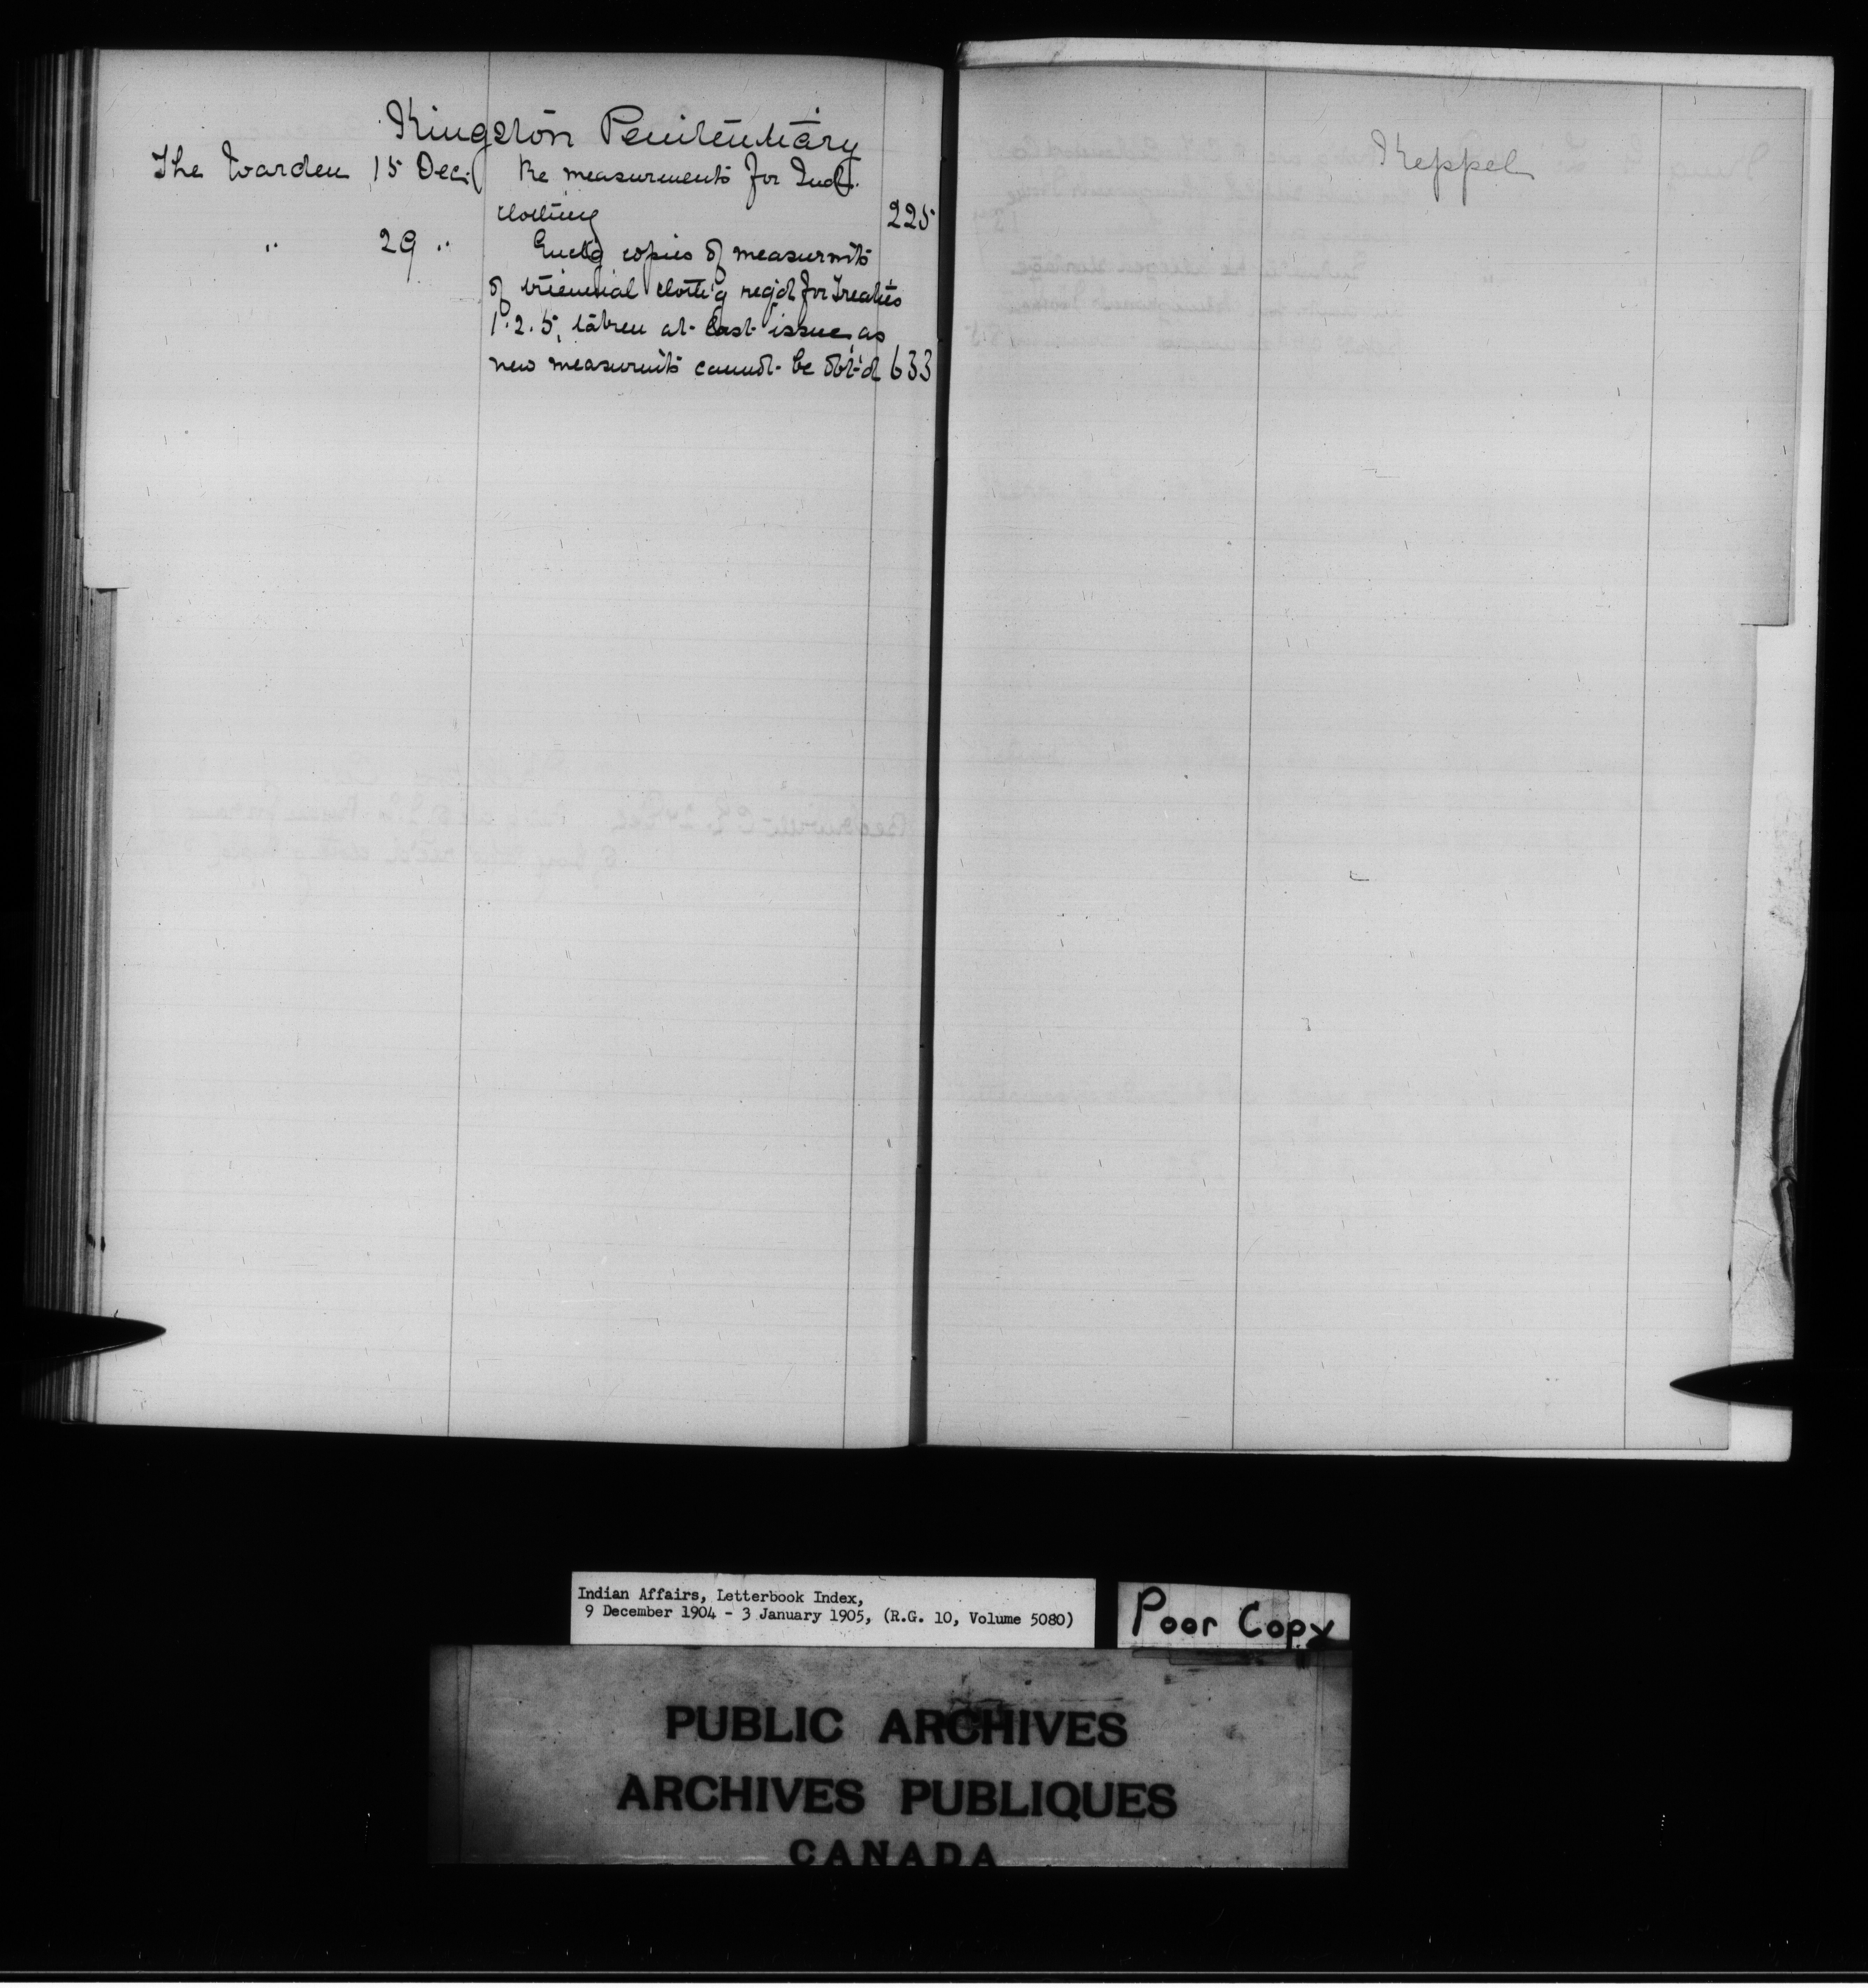 Kingston Penitentiary
The Warden 15 Dec. Re measurements for Inds.
clothing 225
" 29 " Enclg copies of measurm'ts
of triennial clothi'g req'd for Treaties
1.2.5, taken at last issue, as
new measurm'ts cannot be obt'd 633
Keppel
Indian Affairs, Letterbook Index,
9 December 1904 - 3 January 1905, (R.G. 10, Volume 5080)
Poor Copy
PUBLIC ARCHIVES
ARCHIVES PUBLIQUES
CANADA